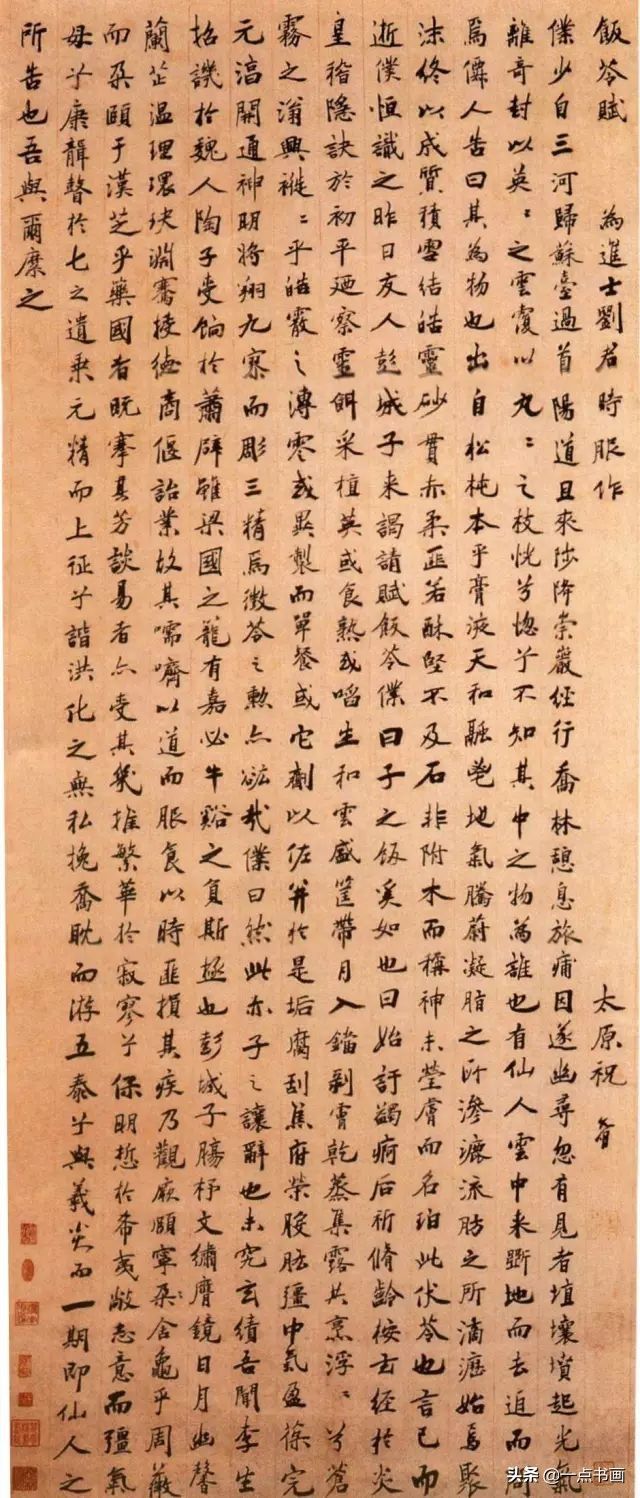 飯苓賦 為進士劉君時服作 太原祝
僕少自三河歸蘇臺過首陽道且來陟降崇巖經行喬林憩息旅痡因遂幽尋忽有見者埴壤墳起光氣
離奇封以英〻之雲覆以丸〻之枝恍兮惚兮不知其中之物為誰也有仙人雲中来斲地而去追而問
焉儕人告曰其為物也出自松杶本乎膏液天和融鬯地氣騰蔚凝脂之所滲漉流肪之所滴瀝始焉聚
沫終以成質積雪結皓靈砂貫赤柔匪若酥堅不及石非附木而稱神未瑩膚而名珀此伏苓也言已而
逝僕恒識之昨日友人彭城子来謁請賦飯苓僕曰子之飯奚如也曰始訏蠲痾后祈脩齡按玄經於炎
皇稽隱訣於初平廼察靈餌采植英或食熟或啗生和雲盛筐帶月入鐺剥膚乾蒸集露共烹浮〻兮蒼
霧之滃興褷〻乎皓霰之漙零或異製而單餐或它劑以佐并於是垢腐刮焦府榮胺肱彊中氣盈葆完
元滈開通神明將翔九寮而彫三精焉微苓之勲亦谹哉僕曰然此亦子之讓辭也未究玄績吾聞李生
招譏於魏人陶子受餉於蕭辟雖梁國之寵有嘉必牛谿之負斯極也彭城子腸杼文繡膺鏡日月幽馨
蘭芷温理環玦淵騫接德商偃詒業故其嚅嚌以道而服食以時匪損其疾乃觀厥頤寧朵舍龜乎周薇
而朶頤于漢芝乎藥國者既搴其芳談易者亦受其幾推繁華於寂寥兮保明悊於希夷敝志意而彊氣
母兮康韻聱於七之遺乘元精而上征兮諧洪化之無私挽喬耽而游五泰兮與羲炎而一期即仙人之
所告也吾與爾糜之
头条 @一点书画